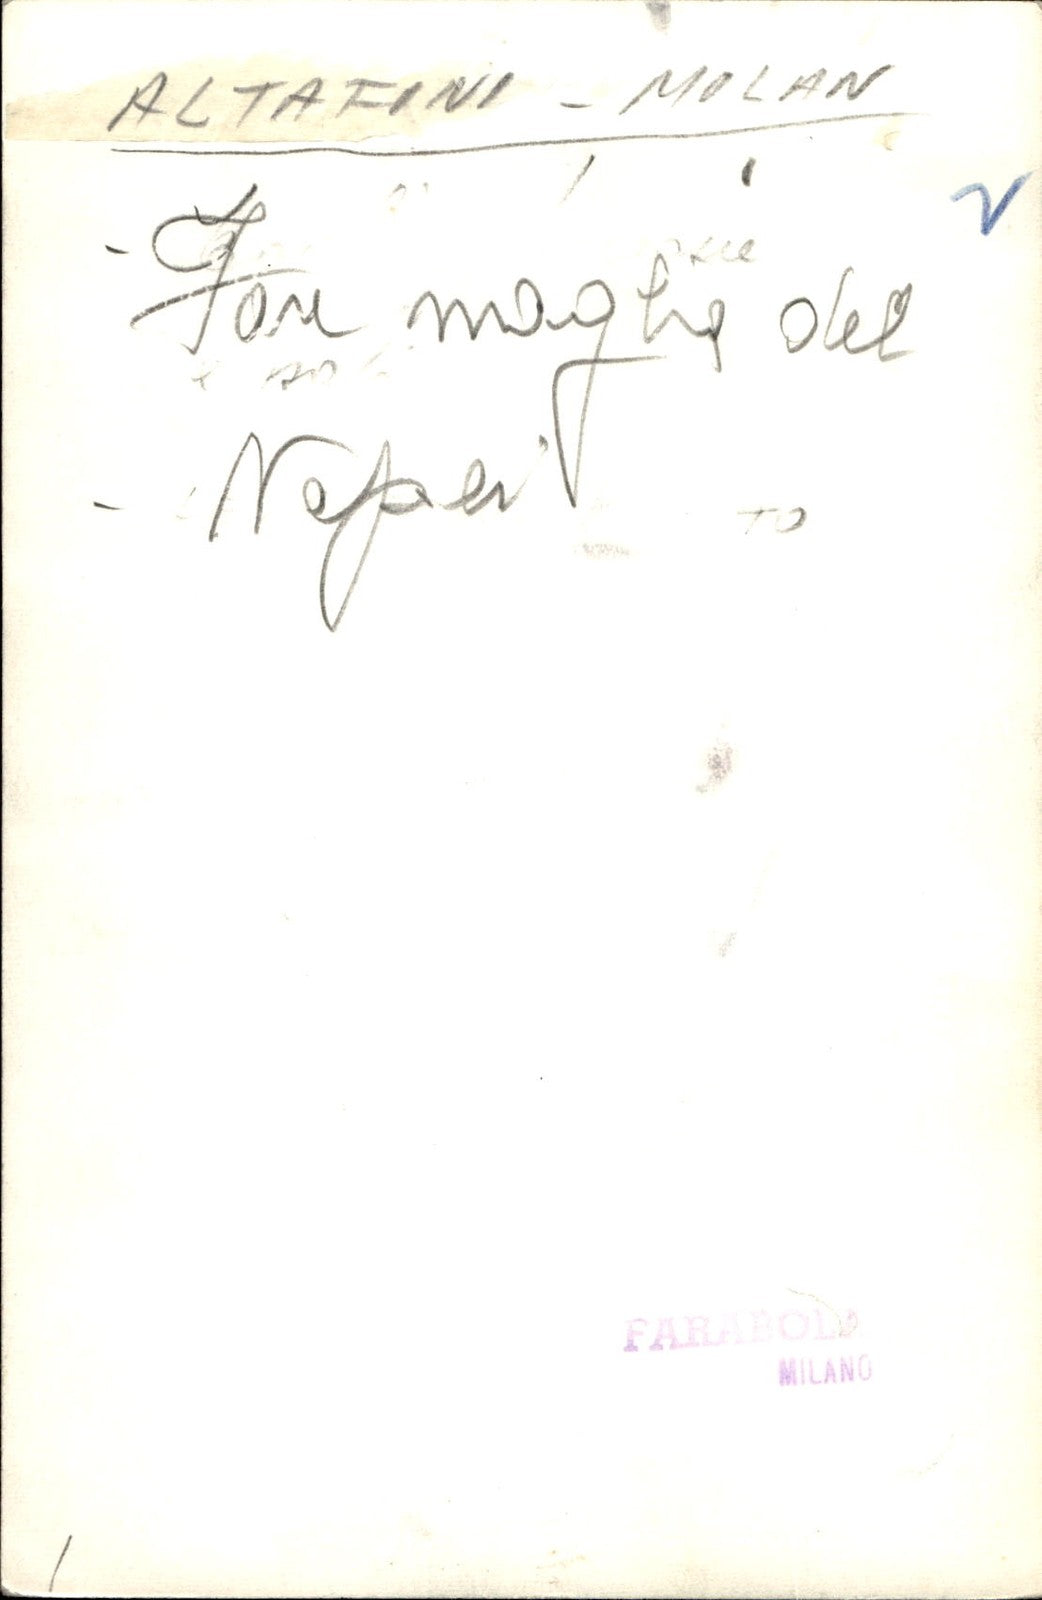 ALTAFINI - MILAN
- Fare maglia del
- Napoli
TO
FARABOLA
MILANO